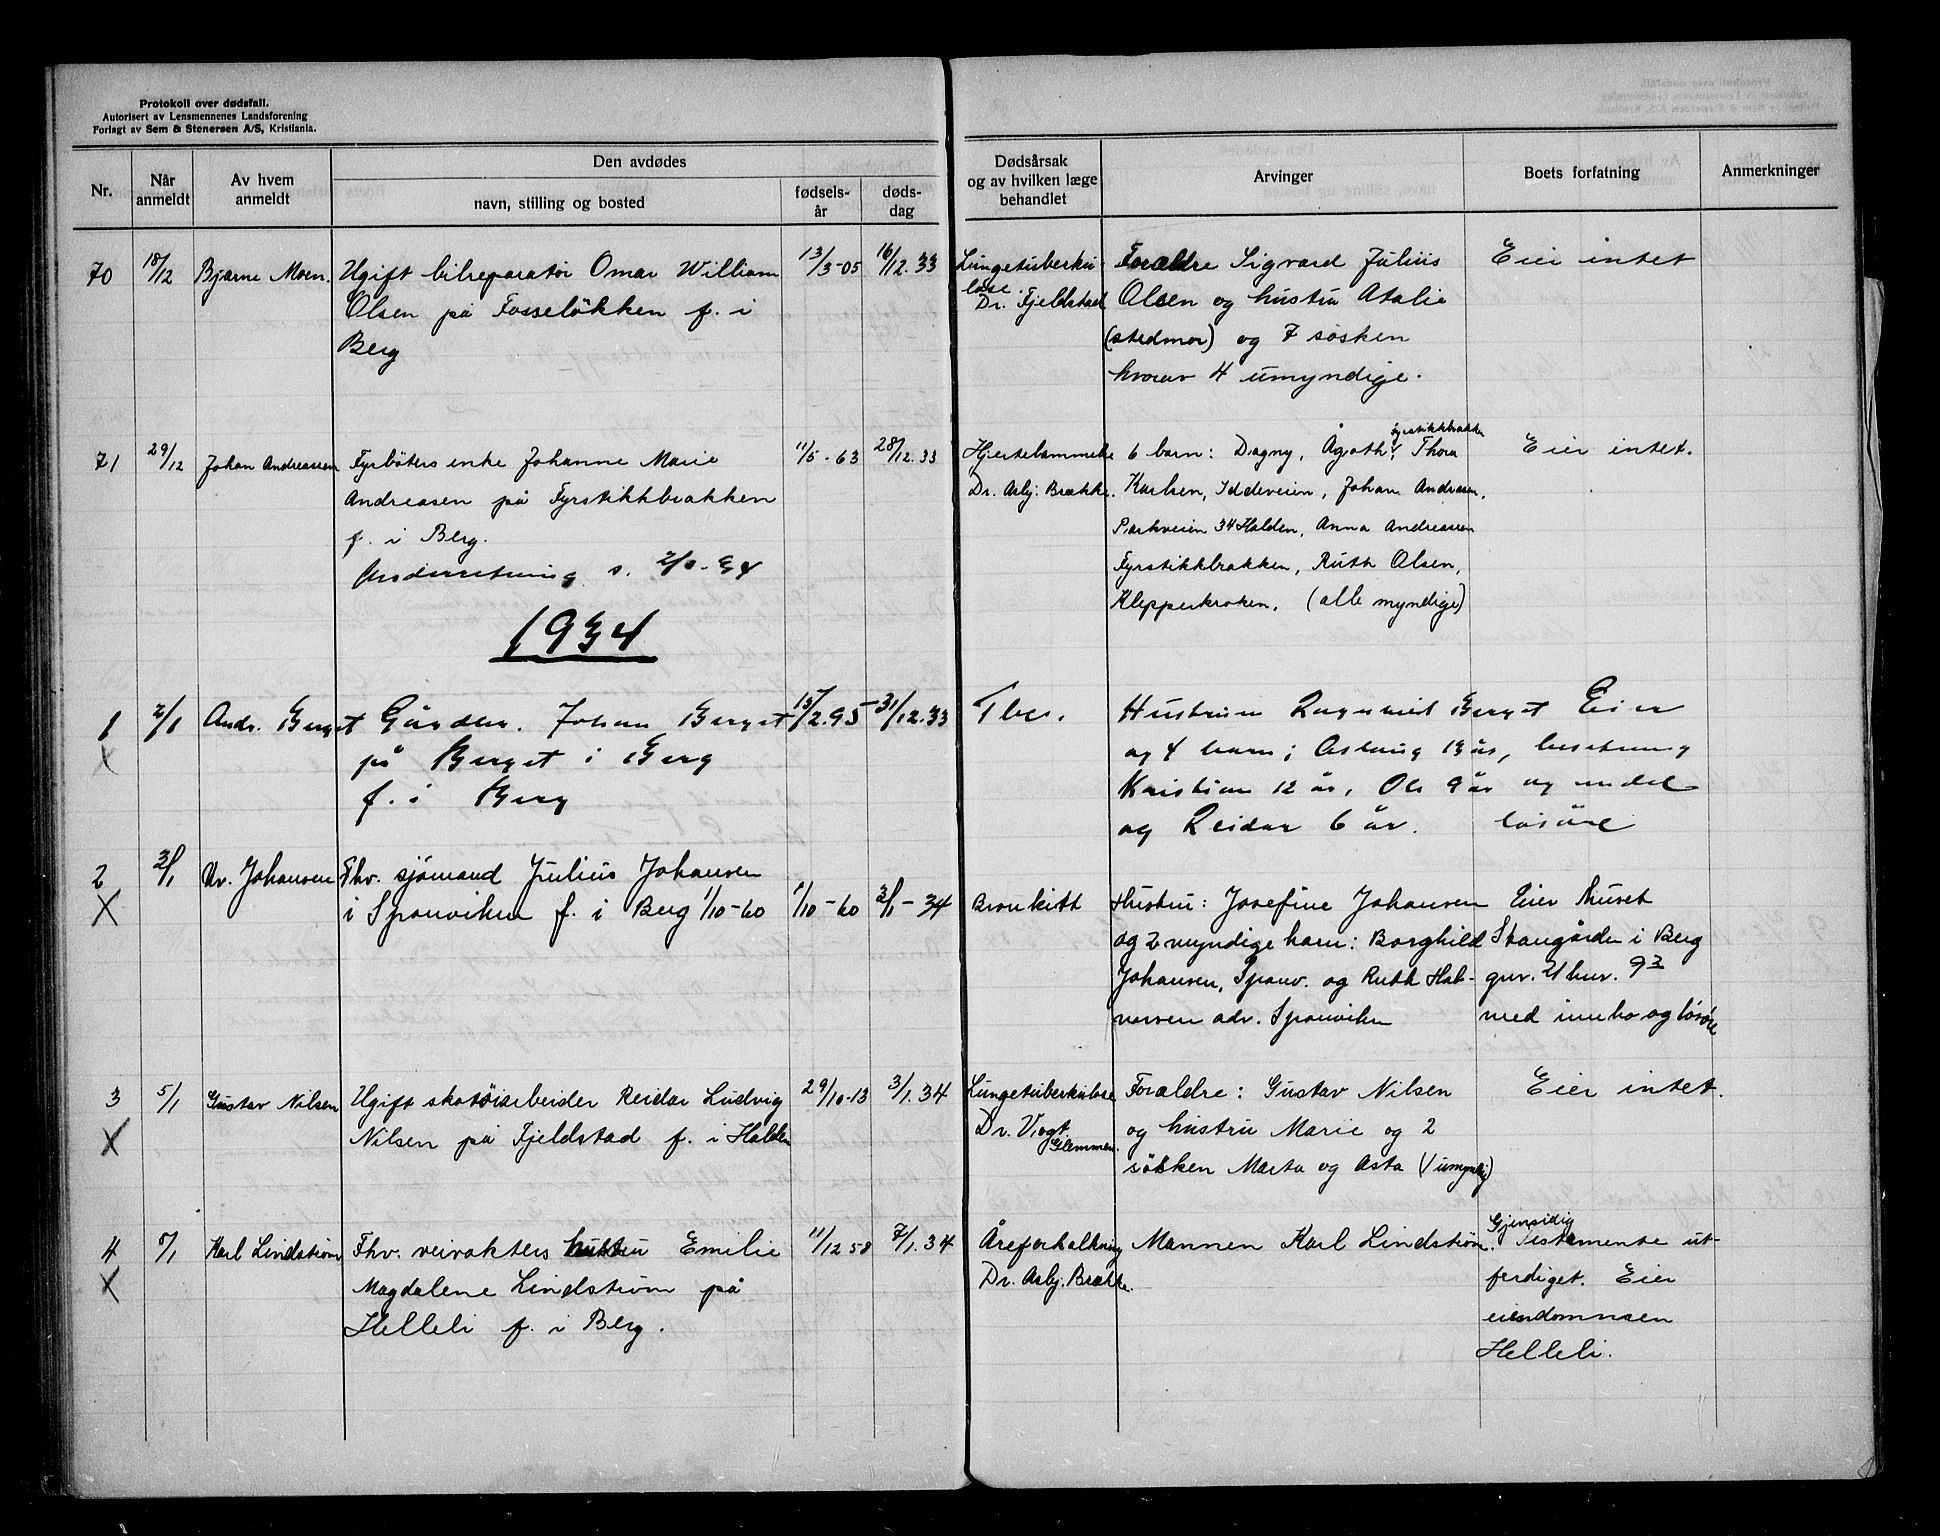 Protokoll over dødsfall.
Autorisert av Lensmennenes Landsforening
Forlagt av Sem & Stenersen A/S, Kristiania.
Nr.
Når anmeldt
Av hvem anmeldt
Den avdødes
navn, stilling og bosted
fødsels-år
døds-dag
Dødsårsak
og av hvilken læge
behandlet
Arvinger
Boets forfatning
Anmerkninger
70
18/12
Bjarne Moen.
Ugift bilreparatør Omar William
Olsen på Fosseløkken f. i
Berg
13/3-05
16/12.33
Lungetuberku-
lose.
Dr. Fjeldstad
Forældre Sigvard Julius
Olsen og hustru Atalie
(stedmor) og 7 søsken
hvorav 4 umyndige.
Eier intet
71
29/12
Johan Andreassen
Fyrbøters enke Johanne Marie
Andreasen på Fyrstikkbrakken
f. i Berg.
Underretning s. 2/1-34
11/5-63
28/12.33
Hjertelammelse
Dr. Asbj. Brække.
fyrstikkbrakken
6 barn: Dagny, Ågoth, Thora
Karlsen, Iddeveien, Johan Andreasen,
Parkveien 34 Halden, Anna Andreassen
Fyrstikkbrakken, Ruth Olsen,
Klepperkroken. (alle myndige)
Eier intet.
1934
1
X
2/1
Andr. Berget
Gårdbr. Johan Berget
på Berget i Berg
f. i Berg
15/2.95
31/12.33
Tbc.
Hustrun Ragnhild Berget
og 4 barn; Aslaug 13 år,
Kristian 12 år, Ole 9 år
og Reidar 6 år.
Eier
besetning
og endel
løsøre
2
X
3/1
Kr. Johansen
Fhv. sjømand Julius Johansen
i Sponviken f. i Berg 1/10-60
1/10-60
3/1-34
Bronkitt
Hustru: Josefine Johansen
og 2 myndige barn: Borghild
Johansen, Sponv. og Ruth Hal-
vorsen adr. Sponviken
Eier huset
Skaugården i Berg
gnr. 21 bnr. 93
med innbo og løsøre
3
X
5/1
Gustav Nilsen
Ugift skotøiarbeider Reidar Ludvig
Nilsen på Fjeldstad f. i Halden
29/10-13
3/1.34
Lungetuberkulose
Dr. Vogt.
Glemmen.
Forældre: Gustav Nilsen
og hustru Marie og 2
søsken Marta og Asta (1 umyndig)
Eier intet.
4
X
8/1
Karl Lindstrøm
Fhv. veivokters hustru Emilie
Magdalene Lindstrøm på
Helleli f. i Berg.
11/12 58
7/1.34
Åreforkalkning
Dr. Asbj. Brække.
Mannen Karl Lindstrøm.
Gjensidig
Testamente ut-
ferdiget. Eier
eiendommen
Helleli.